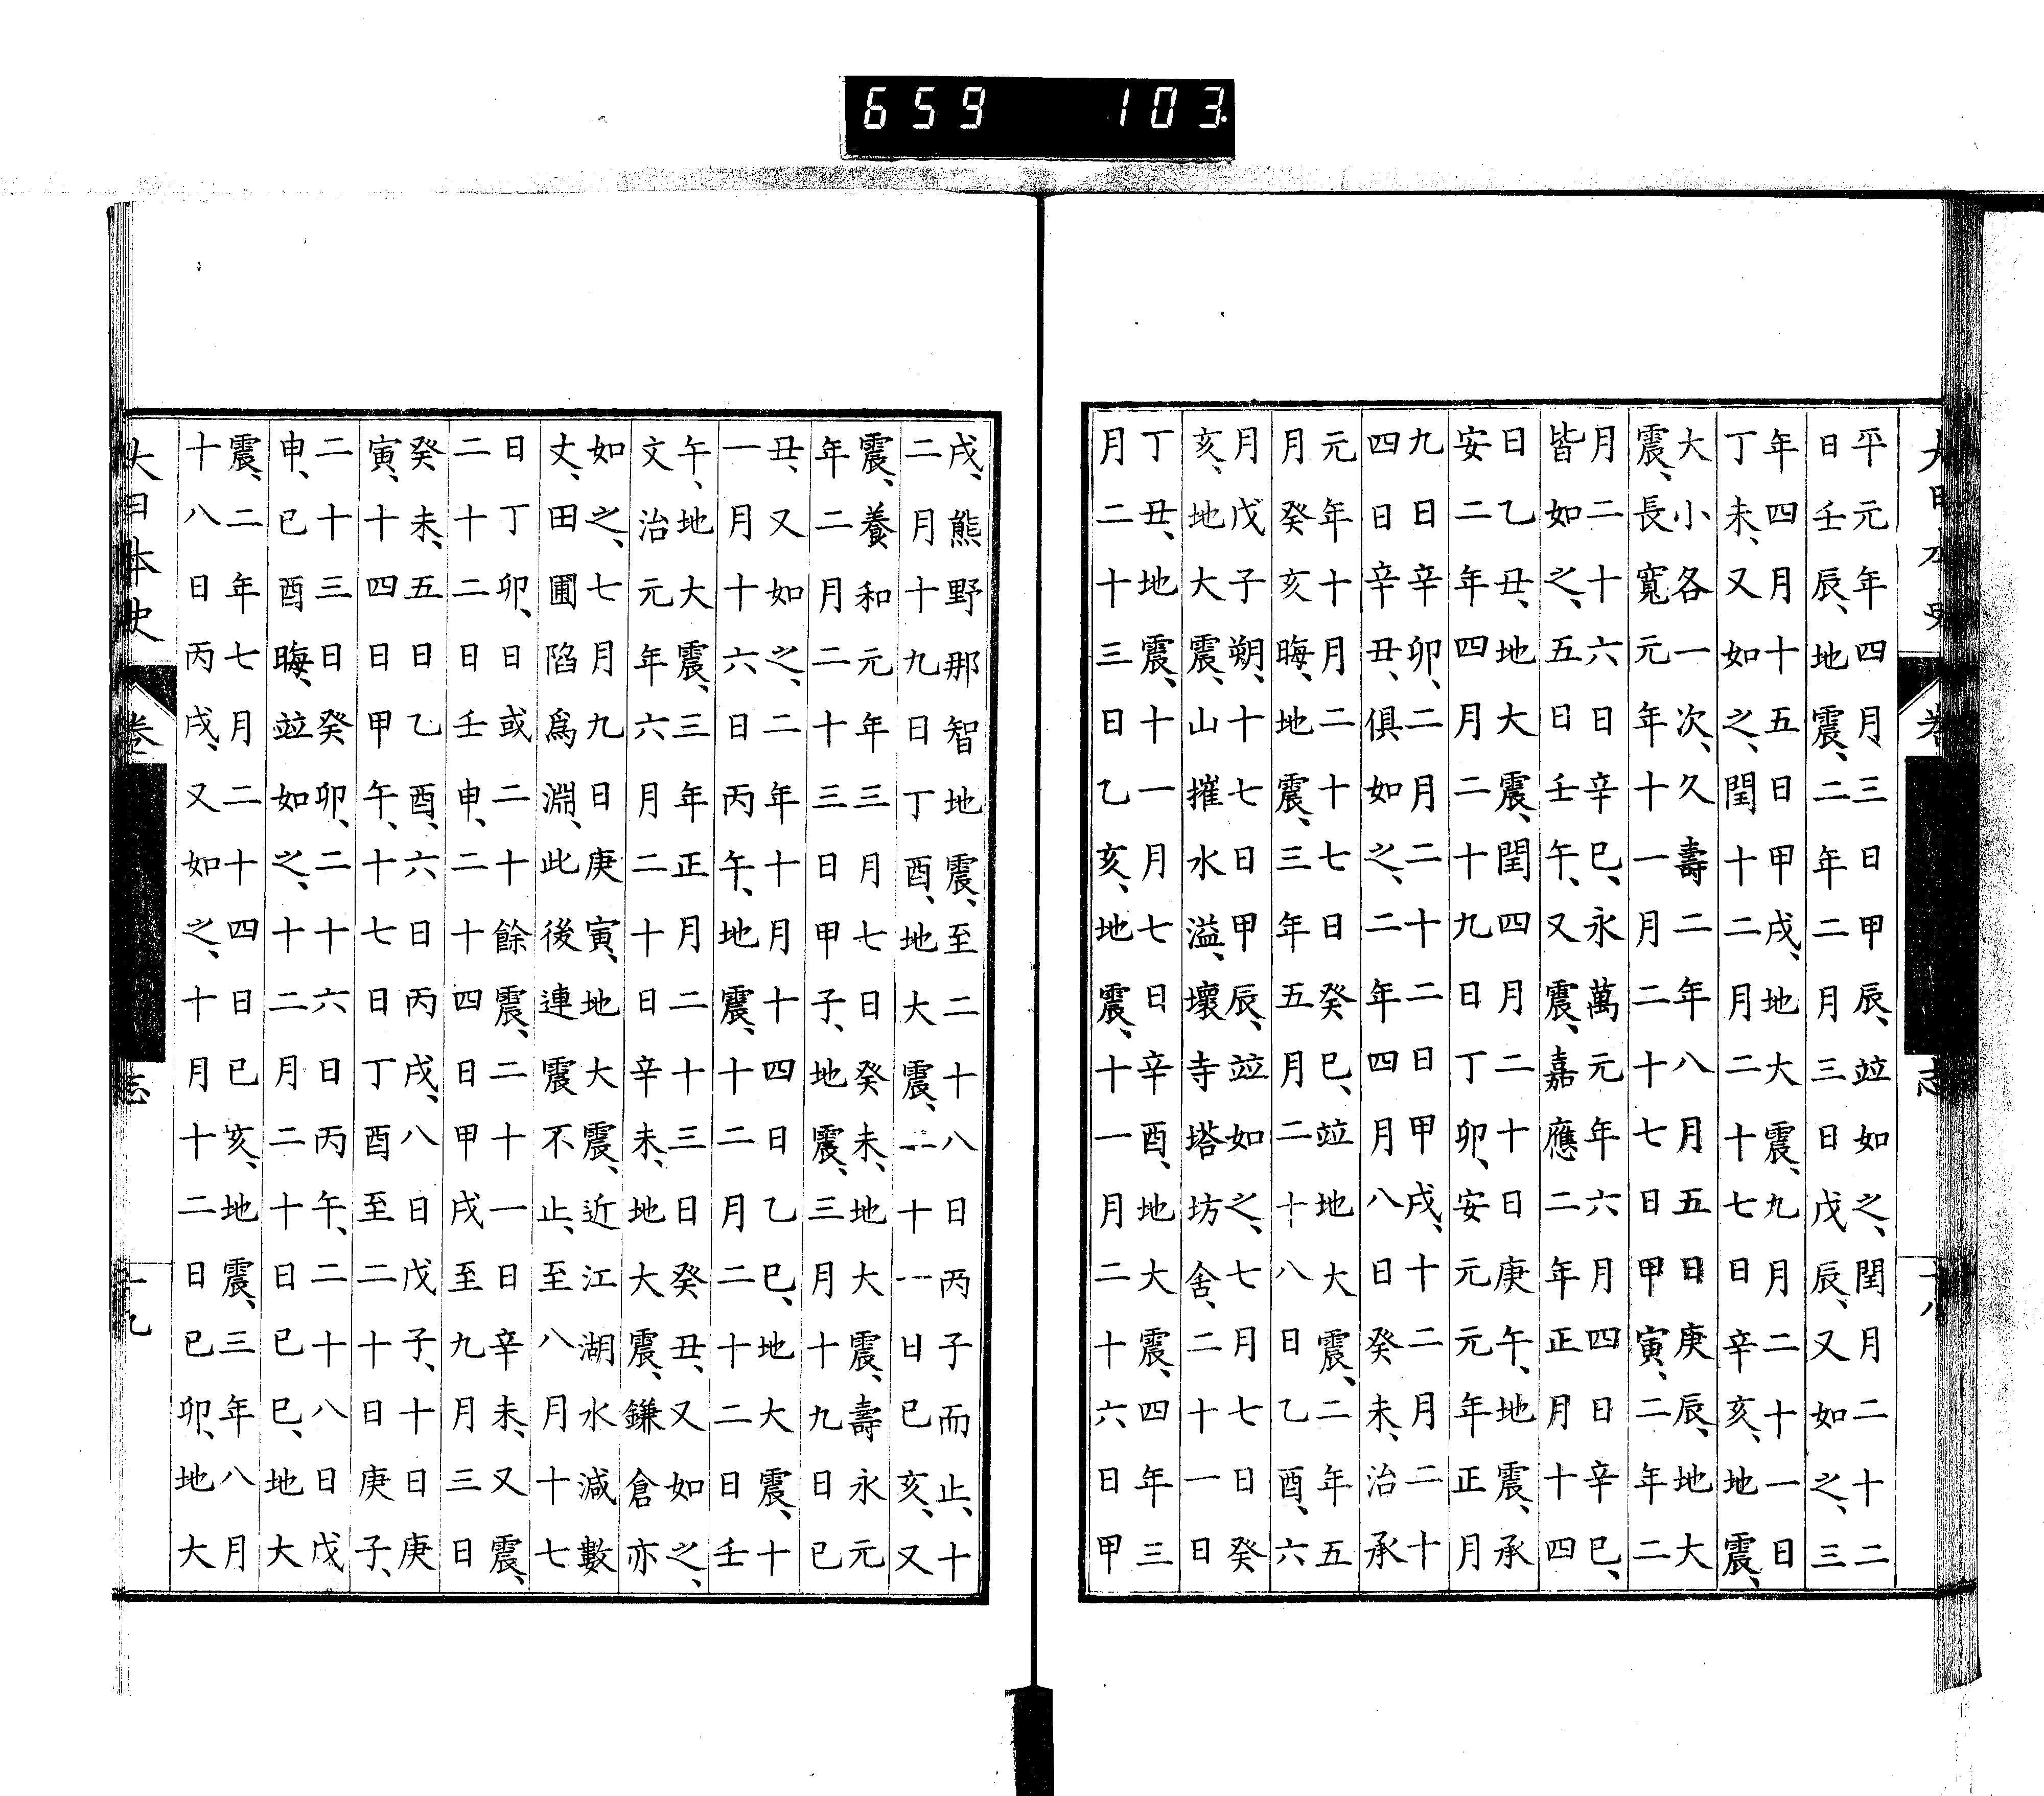 659 103
大日本史 卷 志 十八
平元年四月三日甲辰、竝如之、閏月二十二
日壬辰、地震、二年二月三日戊辰、又如之、三
年四月十五日甲戌、地大震、九月二十一日
丁未、又如之、閏十二月二十七日辛亥、地震、
大小各一次、久壽二年八月五日庚辰、地大
震、長寬元年十一月二十七日甲寅、二年二
月二十六日辛巳、永萬元年六月四日辛巳、
皆如之、五日壬午、又震、嘉應二年正月十四
日乙丑、地大震、閏四月二十日庚午、地震、承
安二年四月二十九日丁卯、安元元年正月
九日辛卯、二月二十二日甲戌、十二月二十
四日辛丑、俱如之、二年四月八日癸未、治承
元年十月二十七日癸巳、竝地大震、二年五
月癸亥晦、地震、三年五月二十八日乙酉、六
月戊子朔、十七日甲辰、竝如之、七月七日癸
亥、地大震、山摧水溢、壞寺塔坊舍、二十一日
丁丑、地震、十一月七日辛酉、地大震、四年三
月二十三日乙亥、地震、十一月二十六日甲
戌、熊野那智地震、至二十八日丙子而止、十
二月十九日丁酉、地大震、二十一日己亥、又
震、養和元年三月七日癸未、地大震、壽永元
年二月二十三日甲子、地震、三月十九日己
丑、又如之、二年十月十四日乙巳、地大震、十
一月十六日丙午、地震、十二月二十二日壬
午、地大震、三年正月二十三日癸丑、又如之、
文治元年六月二十日辛未、地大震、鎌倉亦
如之、七月九日庚寅、地大震、近江湖水減數
丈、田圃陷爲淵、此後連震不止、至八月十七
日丁卯、日或二十餘震、二十一日辛未、又震、
二十二日壬申、二十四日甲戌至九月三日
癸未、五日乙酉、六日丙戌、八日戊子、十日庚
寅、十四日甲午、十七日丁酉至二十日庚子、
二十三日癸卯、二十六日丙午、二十八日戊
申、己酉晦、竝如之、十二月二十日己巳、地大
震、二年七月二十四日己亥、地震、三年八月
十八日丙戌、又如之、十月十二日己卯、地大
大日本史 卷 志 十九